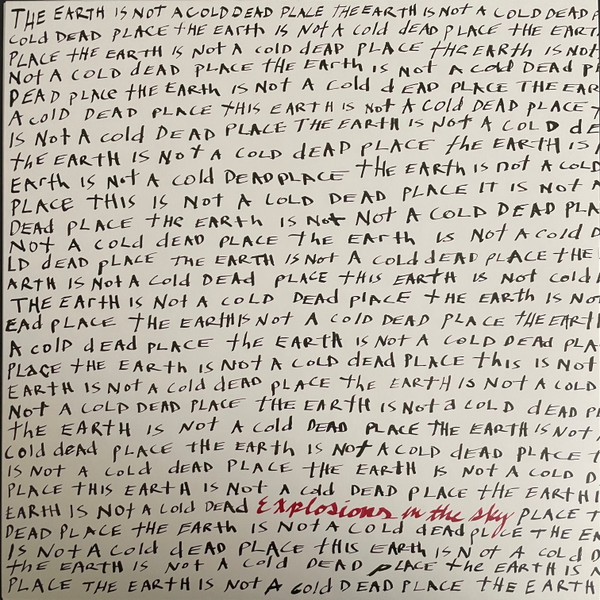 THE EARTH IS NOT A COLD DEAD PLACE THE EARTH IS NOT A COLD DEAD P
COLD DEAD PLACE tHE EARth IS NOt A COLD dEAD PLACE tHE EARt
PLACE tHE EARtH IS NOt A cold dEAD PLACE tHE EARtH IS NOt
NOt A COLD dEAD PLACE tHE EARtH IS NOt A cold DEAD P
DEAD PLACE tHE EARtH IS NOt A Cold dEAD PLACE THE EAR
A colD DEAD PLACE tHIS EARtH IS NOt A COLD DEAD PLACE T
IS NOt A cold DEAD PLACE THE EARtH IS NOt A COLD dE
tHE EARTH IS NOT A COLD dEAD PLACE tHE EARTH IS
EARth IS NOt A cold DEAD PLACE tHE EARTH IS nOt A COLD
PLACE THIS IS NOT A COLD DEAD PLACE IT IS NOt A
DEAD PLACE tHE EARtH IS NOt NOt A COLD DEAD PLA
NOt A COLD dEAD PLACE tHE EARtH IS NOt A cold D
LD dEAD PLACE tHE EARTH IS NOt A Cold dEAD PLACE tHE
ARTH IS NOt A Cold DEAd PLACE tHIS EARTH IS NOt cold
THE EARtH IS NOt A COLD DEAd PLACE tHE EARtH IS NO
EAd PLACE tHE EARtH IS NOt A COLD DEAD PLACE tHE EARt
A colD dEAD PLACE tHE EARtH IS NOt A COLD DEAd PLA
PLACE tHE EARtH IS NOt A COLD dEAD PLACE tHIS IS NOt
EARtH IS NOt A Cold dEAD PLACE tHE EARTH IS NOt A COLD
NOt A COLD DEAD PLACE tHE EARtH IS NOt a COLD dEAD P
tHE EARTH IS NOt A COLD DEAD PLACE tHE EARTH IS NOt
Cold dEAd PLACE THE EARtH IS NOt A COLD dEAD PLACE
IS NOt A cold dEAD PLACE tHE EARtH IS NOt A COLD D
PLACE tHIS EARtH IS NOt A Cold DEAD PLACE tHE EARtH
EARtH IS NOt A COLD DEAD Explosions in the sky PLACE T
DEAD PLACE tHE EARtH IS NOt A COLD dEAd PLACE THE EA
IS NOt A Cold dEAD PLACE tHIS EARtH IS NOt A COLD D
tHE EARtH IS NOt A COLD DEAD PLACE tHE EARtH IS N
PLACE THE EARTH IS NOt A COLD DEAD PLACE tHE EARTH